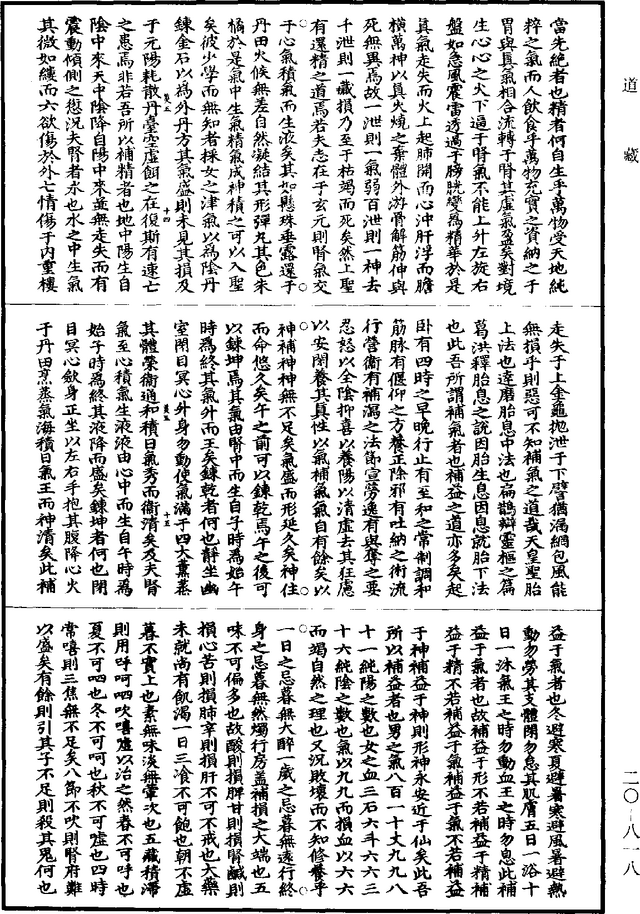 道藏
二〇·八一八
當先絕者也精者何自生乎萬物受天地純
粹之氣而人飲食乎萬物充實之資納之于
胃與真氣相合流轉于腎其虛氣盈矣對境
生心心之火下逼于腎氣不能上外左旋右
盤如急風震雷透過于膀胱變為精華於是
真氣走失而火上起肺開而心沖肝浮而膽
橫萬神以真火燒之棄體外游骨解筋伸與
死無異焉故一泄則一氣弱百泄則一神去
千泄則一藏損乃至于枯竭而死矣然上聖
有還精之道焉若夫志在于玄元則腎氣交
于心氣積氣而生液矣其如懸珠垂露還于
丹田火候無差自然凝結其形彈丸其色朱
橘於是氣中生氣精氣成神積之可以入聖
矣彼少學而無知者採女之津氣以為陰丹
鍊金石以為外丹方其氣盛則未見其損及
于元陽耗散丹臺空虛餌之在復斯有速亡
之患焉非若吾所以補精者也地中陽生自
陰中來天中陰降自陽中來並無走失而有
震動傾側之愆況夫腎者水也水之中生氣
其微如縷而六欲傷於外七情傷于內重樓
走失于上金龜拋泄于下譬猶漏網包風能
無損乎則惡可不知補氣之道哉天皇聖胎
上法也達磨胎息中法也扁鵲辯靈樞之篇
葛洪釋胎息之說因胎生息因息就胎下法
也此吾所謂補氣者也補益之道亦多矣起
卧有四時之早晚行止有至和之常制調和
筋脉有偃仰之方養正除邪有吐納之術流
行營衛有補瀉之法節宣勞逸有與奪之要
忍怒以全陰抑喜以養陽以清虛去其狂慮
以安閑養其真性以氣補氣氣自有餘矣以
神補神神無不足矣氣盛而形延久矣神住
而命悠久矣午之前可以鍊乾焉午之後可
以鍊坤焉其氣由腎中而生自子時為始午
時為終其氣外而王矣鍊乾者何也靜坐幽
室閉目冥心外身勿動使氣滿于四大薰蒸
其體榮衛通和積日氣秀而衛清矣及夫腎
氣至心積氣生液液由心中而生自午時為
始子時為終其液降而盛矣鍊坤者何也閉
目冥心歛身正坐以左右手抱其腹降心火
于丹田烹蒸氣海積日氣王而神清矣此補
益于氣者也冬避寒夏避暑寒避風暑避熱
動勿勞其支體閉勿怠其肌膚五日一浴十
日一沐氣王之時勿動血王之時勿息此補
益于氣者也故補益于形不若補益于精補
益于精不若補益于氣補益于氣不若補益
于神補益于神則形神永安近于仙矣此吾
所以補益者也男之氣八百一十丈九九八
十一純陽之數也女之血三石六斗六六三
十六純陰之數也氣以九九而損血以六六
而竭自然之理也又況敗壞而不知修養乎
一日之忌暮無大醉一歲之忌暮無遠行終
身之忌暮無然燭行房蓋補損之大端也五
味不可偏多也故酸則損脾甘則損腎鹹則
損心苦則損肺辛則損肝不可不戒也大藥
未就尚有飢渴一日三飡不可飽也朝不虛
暮不實上也素無味淡無葷次也五藏積滯
則用呼呵呬吹嘻噓以治之然春不可呼也
夏不可呬也冬不可呵也秋不可噓也四時
常嘻則三焦無不足矣八節不吹則腎府難
以盛矣有餘則引其子不足則殺其鬼何也